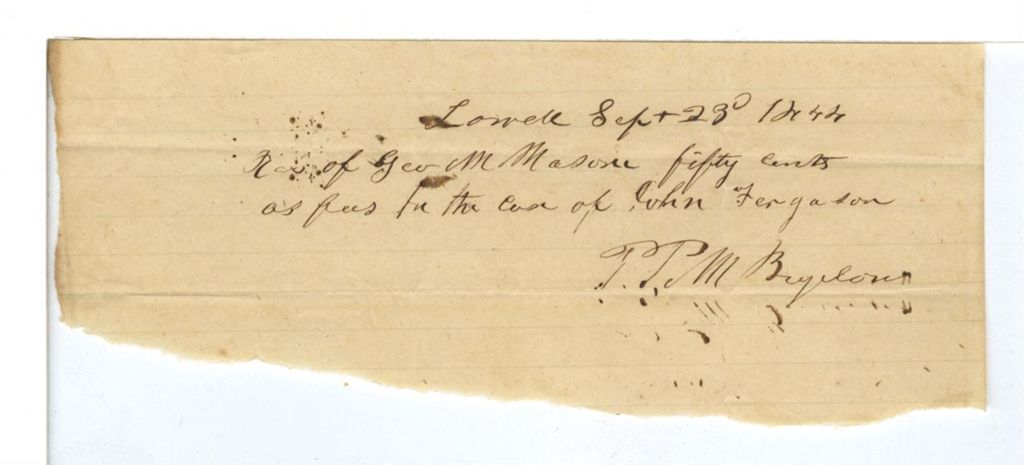 Lowell Sept 23d 1844
Rec of Geo M Mason fifty cents
as fees in the case of John Fergason
P. P. M Bigelow